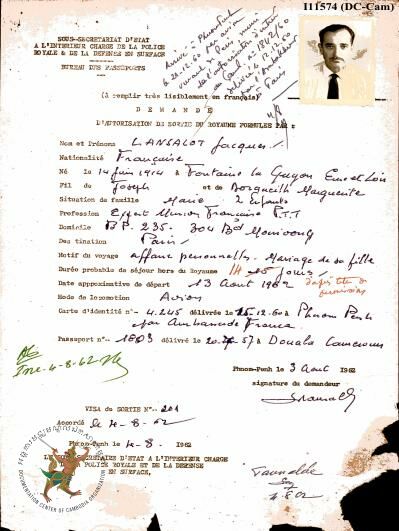 111574 (DC-Cam)
SOUS-SECRETARIAT D'ETAT
A L'INTERIEUR CHARGE DE LA POLICE
ROYALE & DE LA DEFENSE EN SURFACE
BUREAU DES PASSEPORTS
Arrivé à Phnom-Penh
le 20.12.60 par avion
venant de Paris
(à remplir très lisiblement en français)
DEMANDE
D'AUTORISATION DE SORTIE DU ROYAUME FORMULEE PAR :
Nom et Prénoms LANSALOT Jacques
Nationalité Française
Né le 14 Juin 1914 à Fontaine la Guyon Eure et Loir
Fil du Joseph et de Marguerite
Situation de famille Marié 2 Enfants
Profession Expert Mission Française P.T.T
Domicile B.P. 235. 304 Bd Monivong
Destination Paris
Motif du voyage affaires personnelles. Mariage de sa fille
Durée probable de séjour hors du Royaume 15 jours
Date approximative de départ 13 Août 1962
Mode de locomotion Avion
Carte d'identité n°- 4.245 délivrée le 25.12.60 à Phnom Penh
par Ambassade France
Passeport n°- 1803 délivré le 57 à Douala Cameroun
4-8-62
Phnom-Penh le 3 Août 1962
signature du demandeur
VISA de SORTIE N°- 201
Accordé le 4-8-62
Phnom-Penh le 4-8- 1962
LE SECRETAIRE D'ETAT A L'INTERIEUR CHARGE
DE LA POLICE ROYALE ET DE LA DEFENSE
EN SURFACE,
DOCUMENTATION CENTER OF CAMBODIA ORGANIZATION